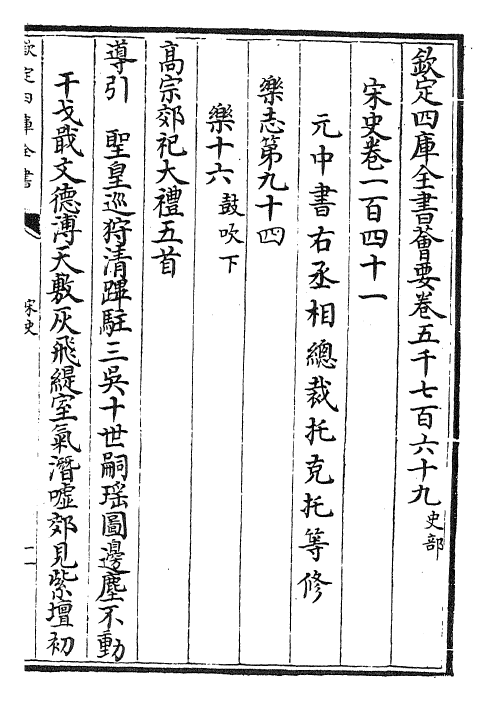 欽定四庫全書薈要卷五千七百六十九 史部
宋史卷一百四十一
元中書右丞相總裁托克托等修
樂志第九十四
樂十六 鼓吹下
高宗郊祀大禮五首
導引 聖皇巡狩清蹕駐三吳十世嗣瑶圖邊塵不動
干戈戢文德溥天敷灰飛緹室氣潛噓郊見紫壇初
欽定四庫全書
宋史
一